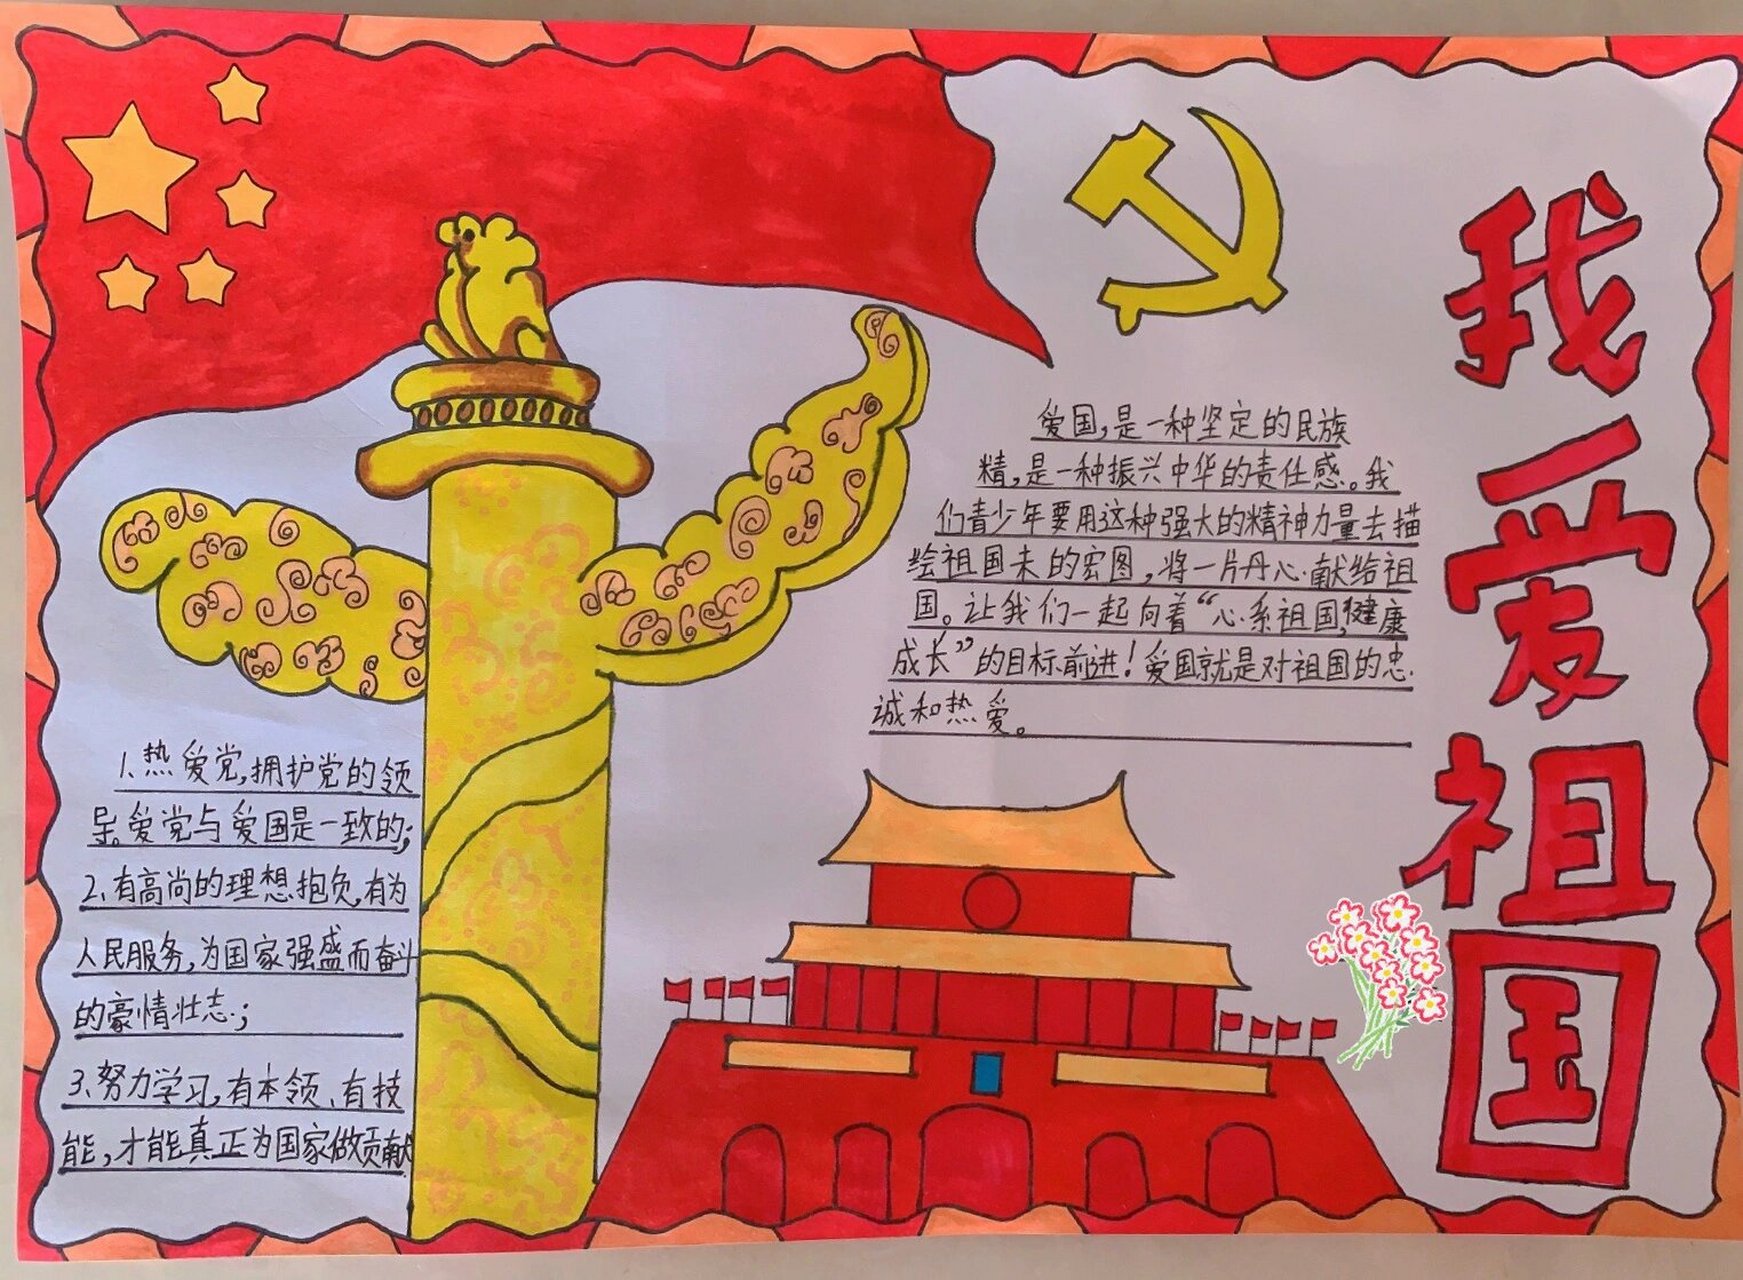 我爱祖国
爱国,是一种坚定的民族
精,是一种振兴中华的责任感。我
们青少年要用这种强大的精神力量去描
绘祖国未的宏图,将一片丹心献给祖
国。让我们一起向着“心系祖国,健康
成长”的目标前进!爱国就是对祖国的忠
诚和热爱。
1、热爱党,拥护党的领
导。爱党与爱国是一致的;
2、有高尚的理想抱负,有为
人民服务,为国家强盛而奋斗
的豪情壮志;
3、努力学习,有本领、有技
能,才能真正为国家做贡献.